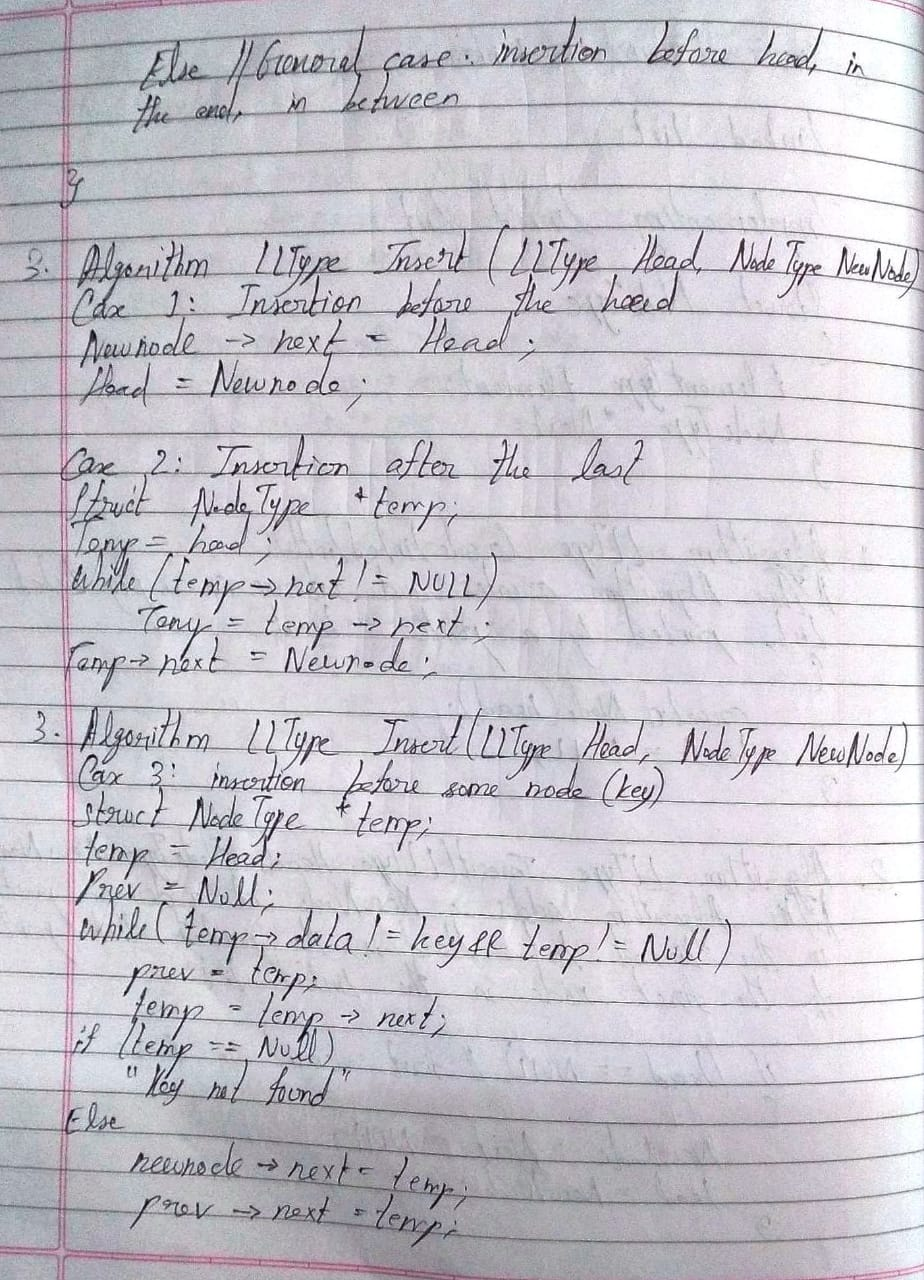 Else // General case : insertion before head, in
the end, in between
}
3. Algorithm LLType Insert (LLType Head, NodeType NewNode)
Case 1: Insertion before the head
Newnode -> next = Head ;
Head = Newnode ;
Case 2: Insertion after the last
Struct NodeType *temp;
Temp = head ;
while (temp -> next != NULL)
Temp = temp -> next ;
Temp -> next = Newnode ;
3. Algorithm LLType Insert (LLType Head, NodeType NewNode)
Case 3: insertion before some node (key)
struct NodeType *temp;
temp = Head;
Prev = Null;
while ( temp -> data != key && temp != Null )
prev = temp;
temp = temp -> next;
if (temp == Null)
"Key not found"
Else
newnode -> next = temp;
prev -> next = temp;